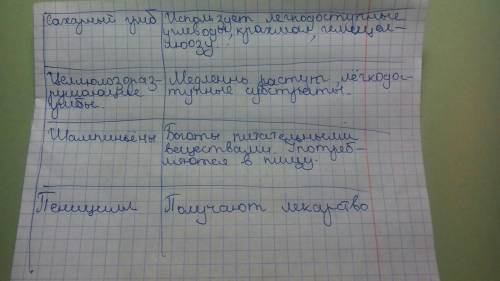 Сахарный гриб Использует легкодоступные
углеводы, крахмал, гемицел-
люлозу.
Целлюлозораз- Медленно растут, лёгкодос-
рушающие тупные субстраты.
грибы.
Шампиньёны Богаты питательными
веществами. Употреб-
ляются в пищу.
Пеницилл Получают лекарство